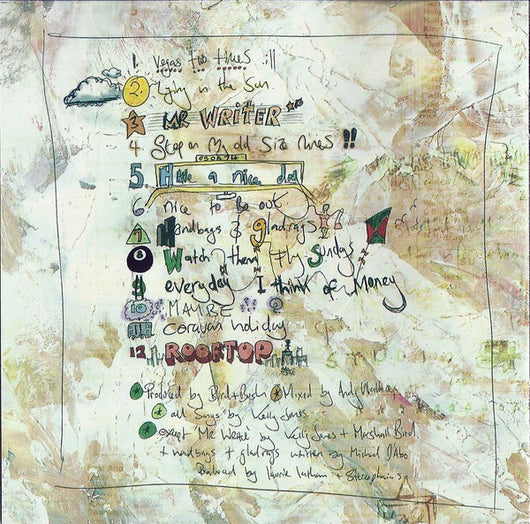 1. Vegas two times :||
2. Lying in the Sun
3 MR WRITER
4 Step on My old Size Nines !!
5 Have a nice day
6 nice to be out
7 Handbags & gladrags
8 Watch them Fly Sundays
9 everyday I think of Money
10 MAYBE
11 caravan holiday
12 ROOFTOP
Produced by Bird + Bush Mixed by Andy
all Songs by Kelly Jones
except Mr Writer by Kelly Jones + Marshall Bird
+ Handbags + gladrags written by Michael D'Abo
Produced by Laurie Latham + Stereophonics